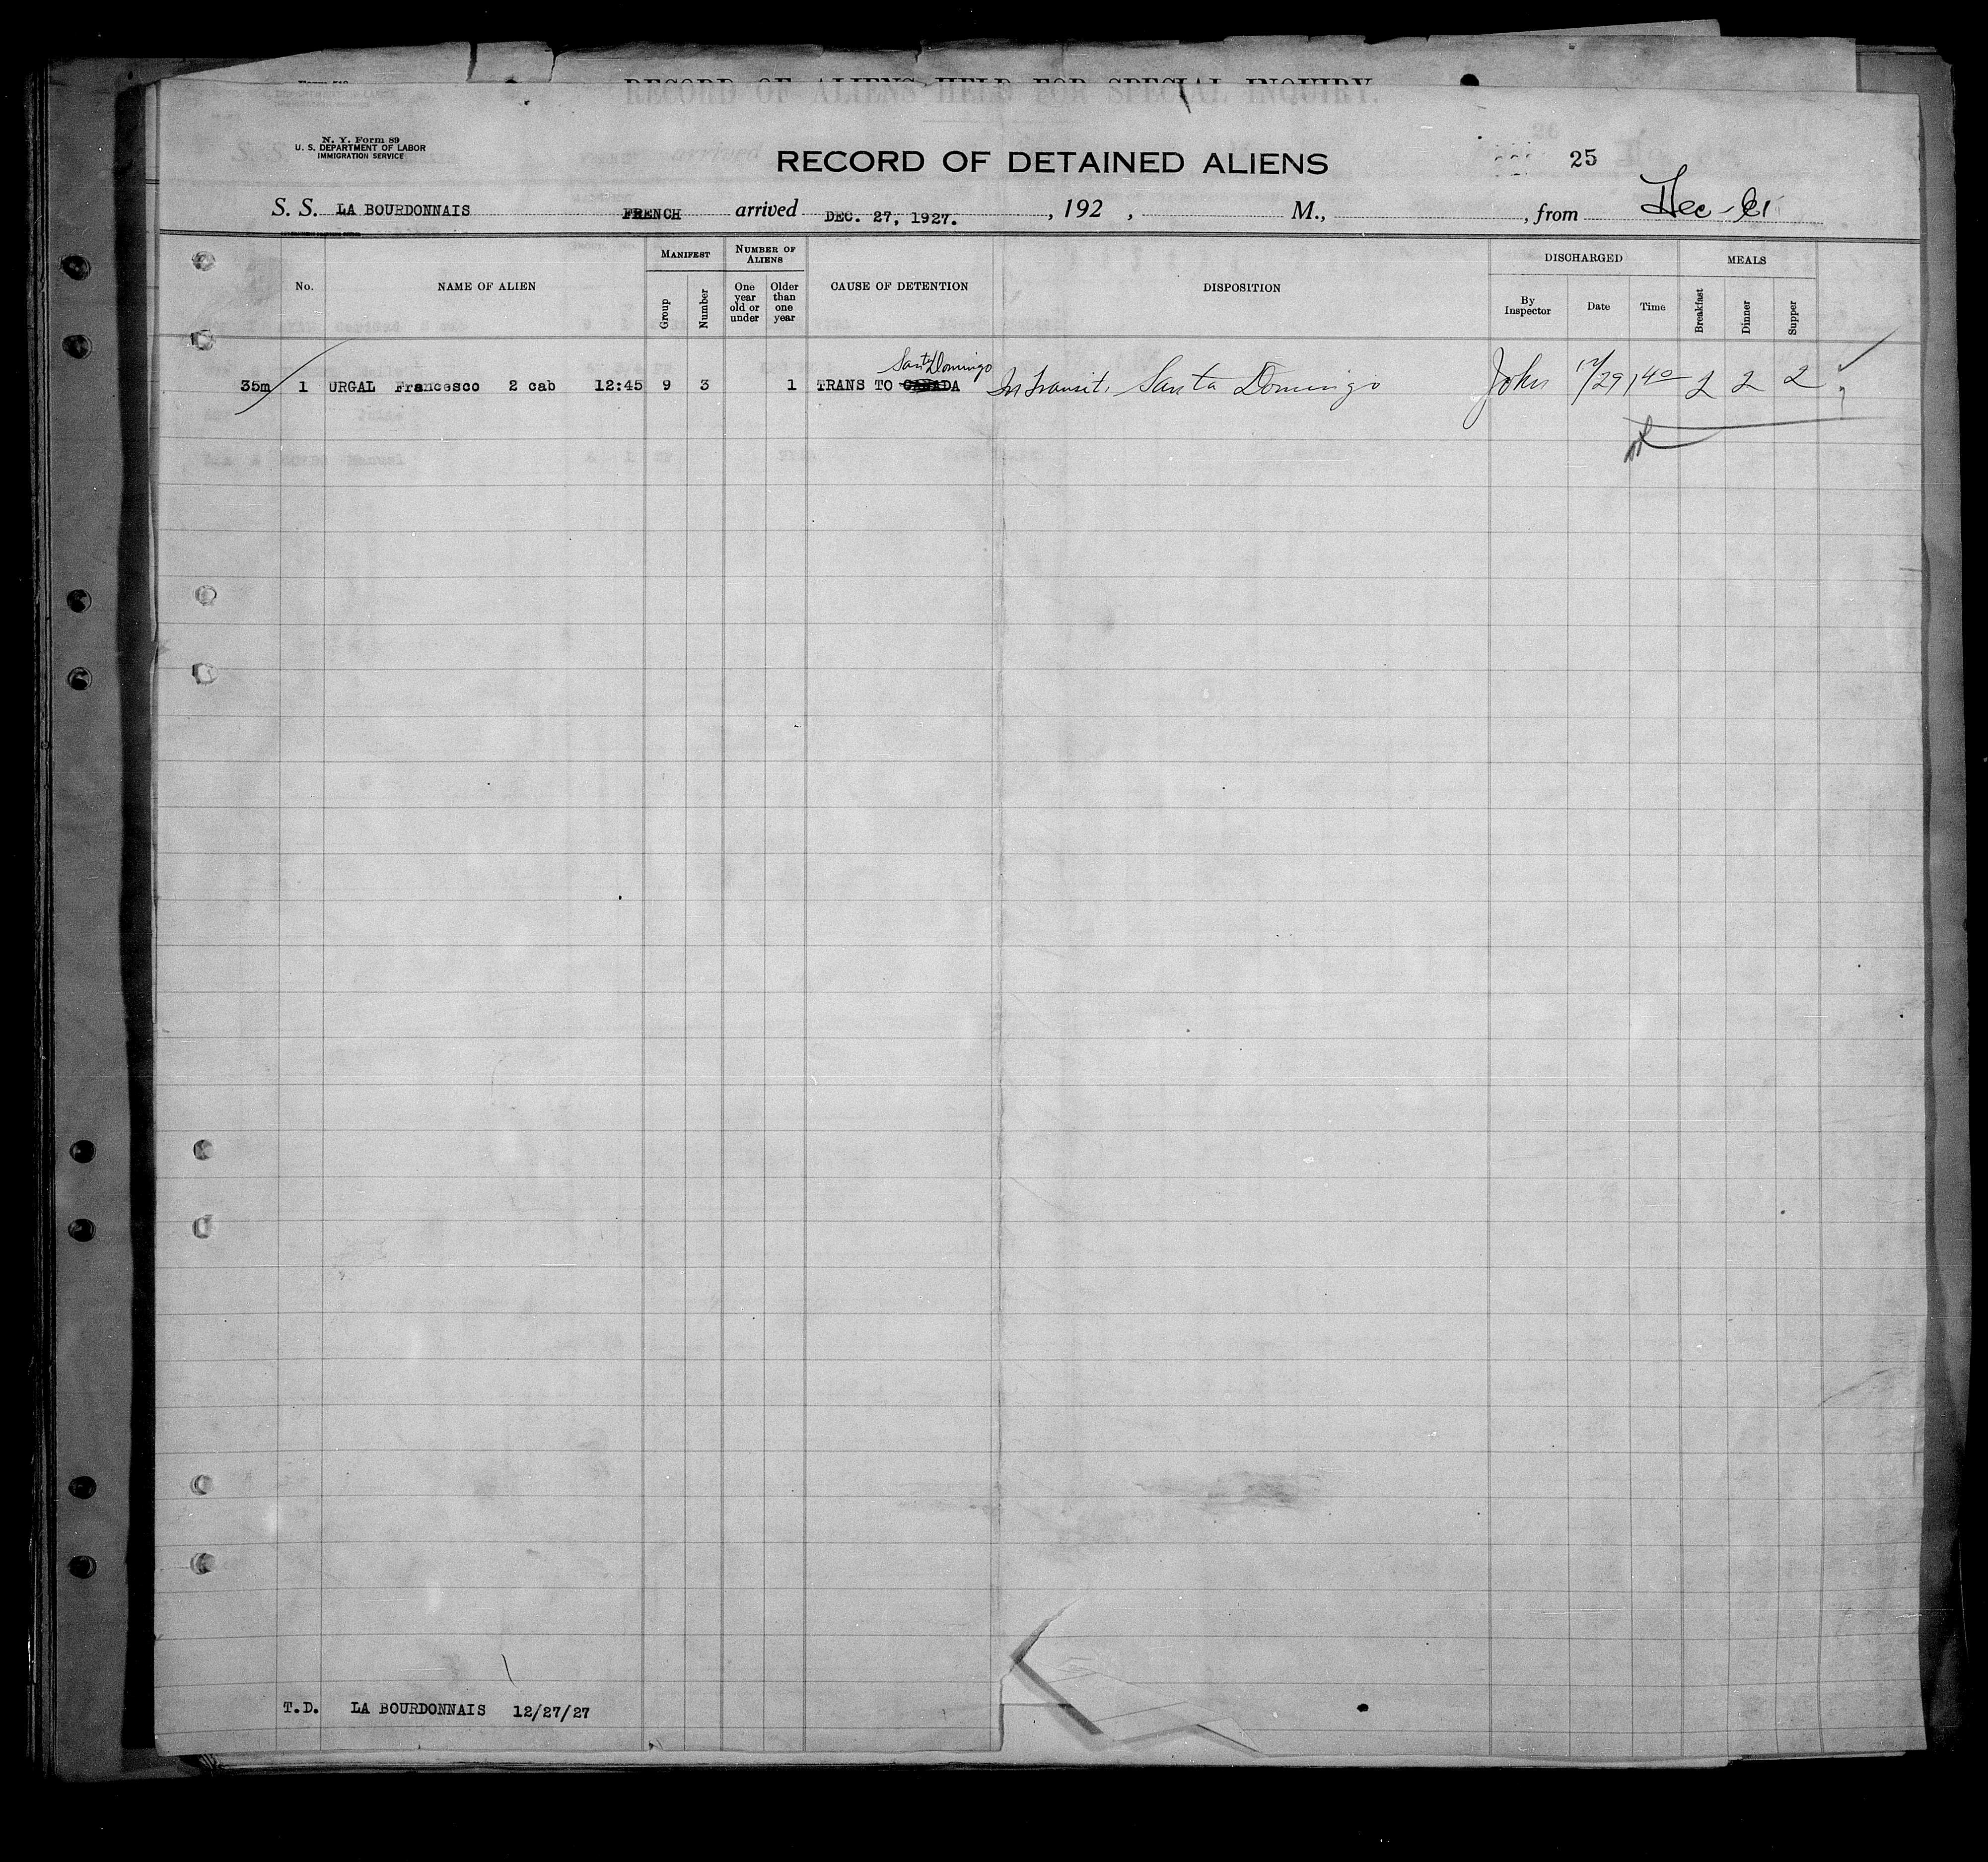 RECORD OF ALIENS HELD FOR SPECIAL INQUIRY.
N. Y. Form 89
U. S. DEPARTMENT OF LABOR
IMMIGRATION SERVICE
RECORD OF DETAINED ALIENS
25
S. S. LA BOURDONNAIS FRENCH arrived DEC. 27, 1927. , 192 , M., , from
No. NAME OF ALIEN MANIFEST Group Number NUMBER OF ALIENS One year old or under Older than one year CAUSE OF DETENTION DISPOSITION DISCHARGED By Inspector Date Time MEALS Breakfast Dinner Supper
Santo Domingo
35m 1 URGAL Francesco 2 cab 12:45 9 3 1 TRANS TO CANADA In Transit, Santa Domingo John 12/29 140 2 2 2
T.D. LA BOURDONNAIS 12/27/27